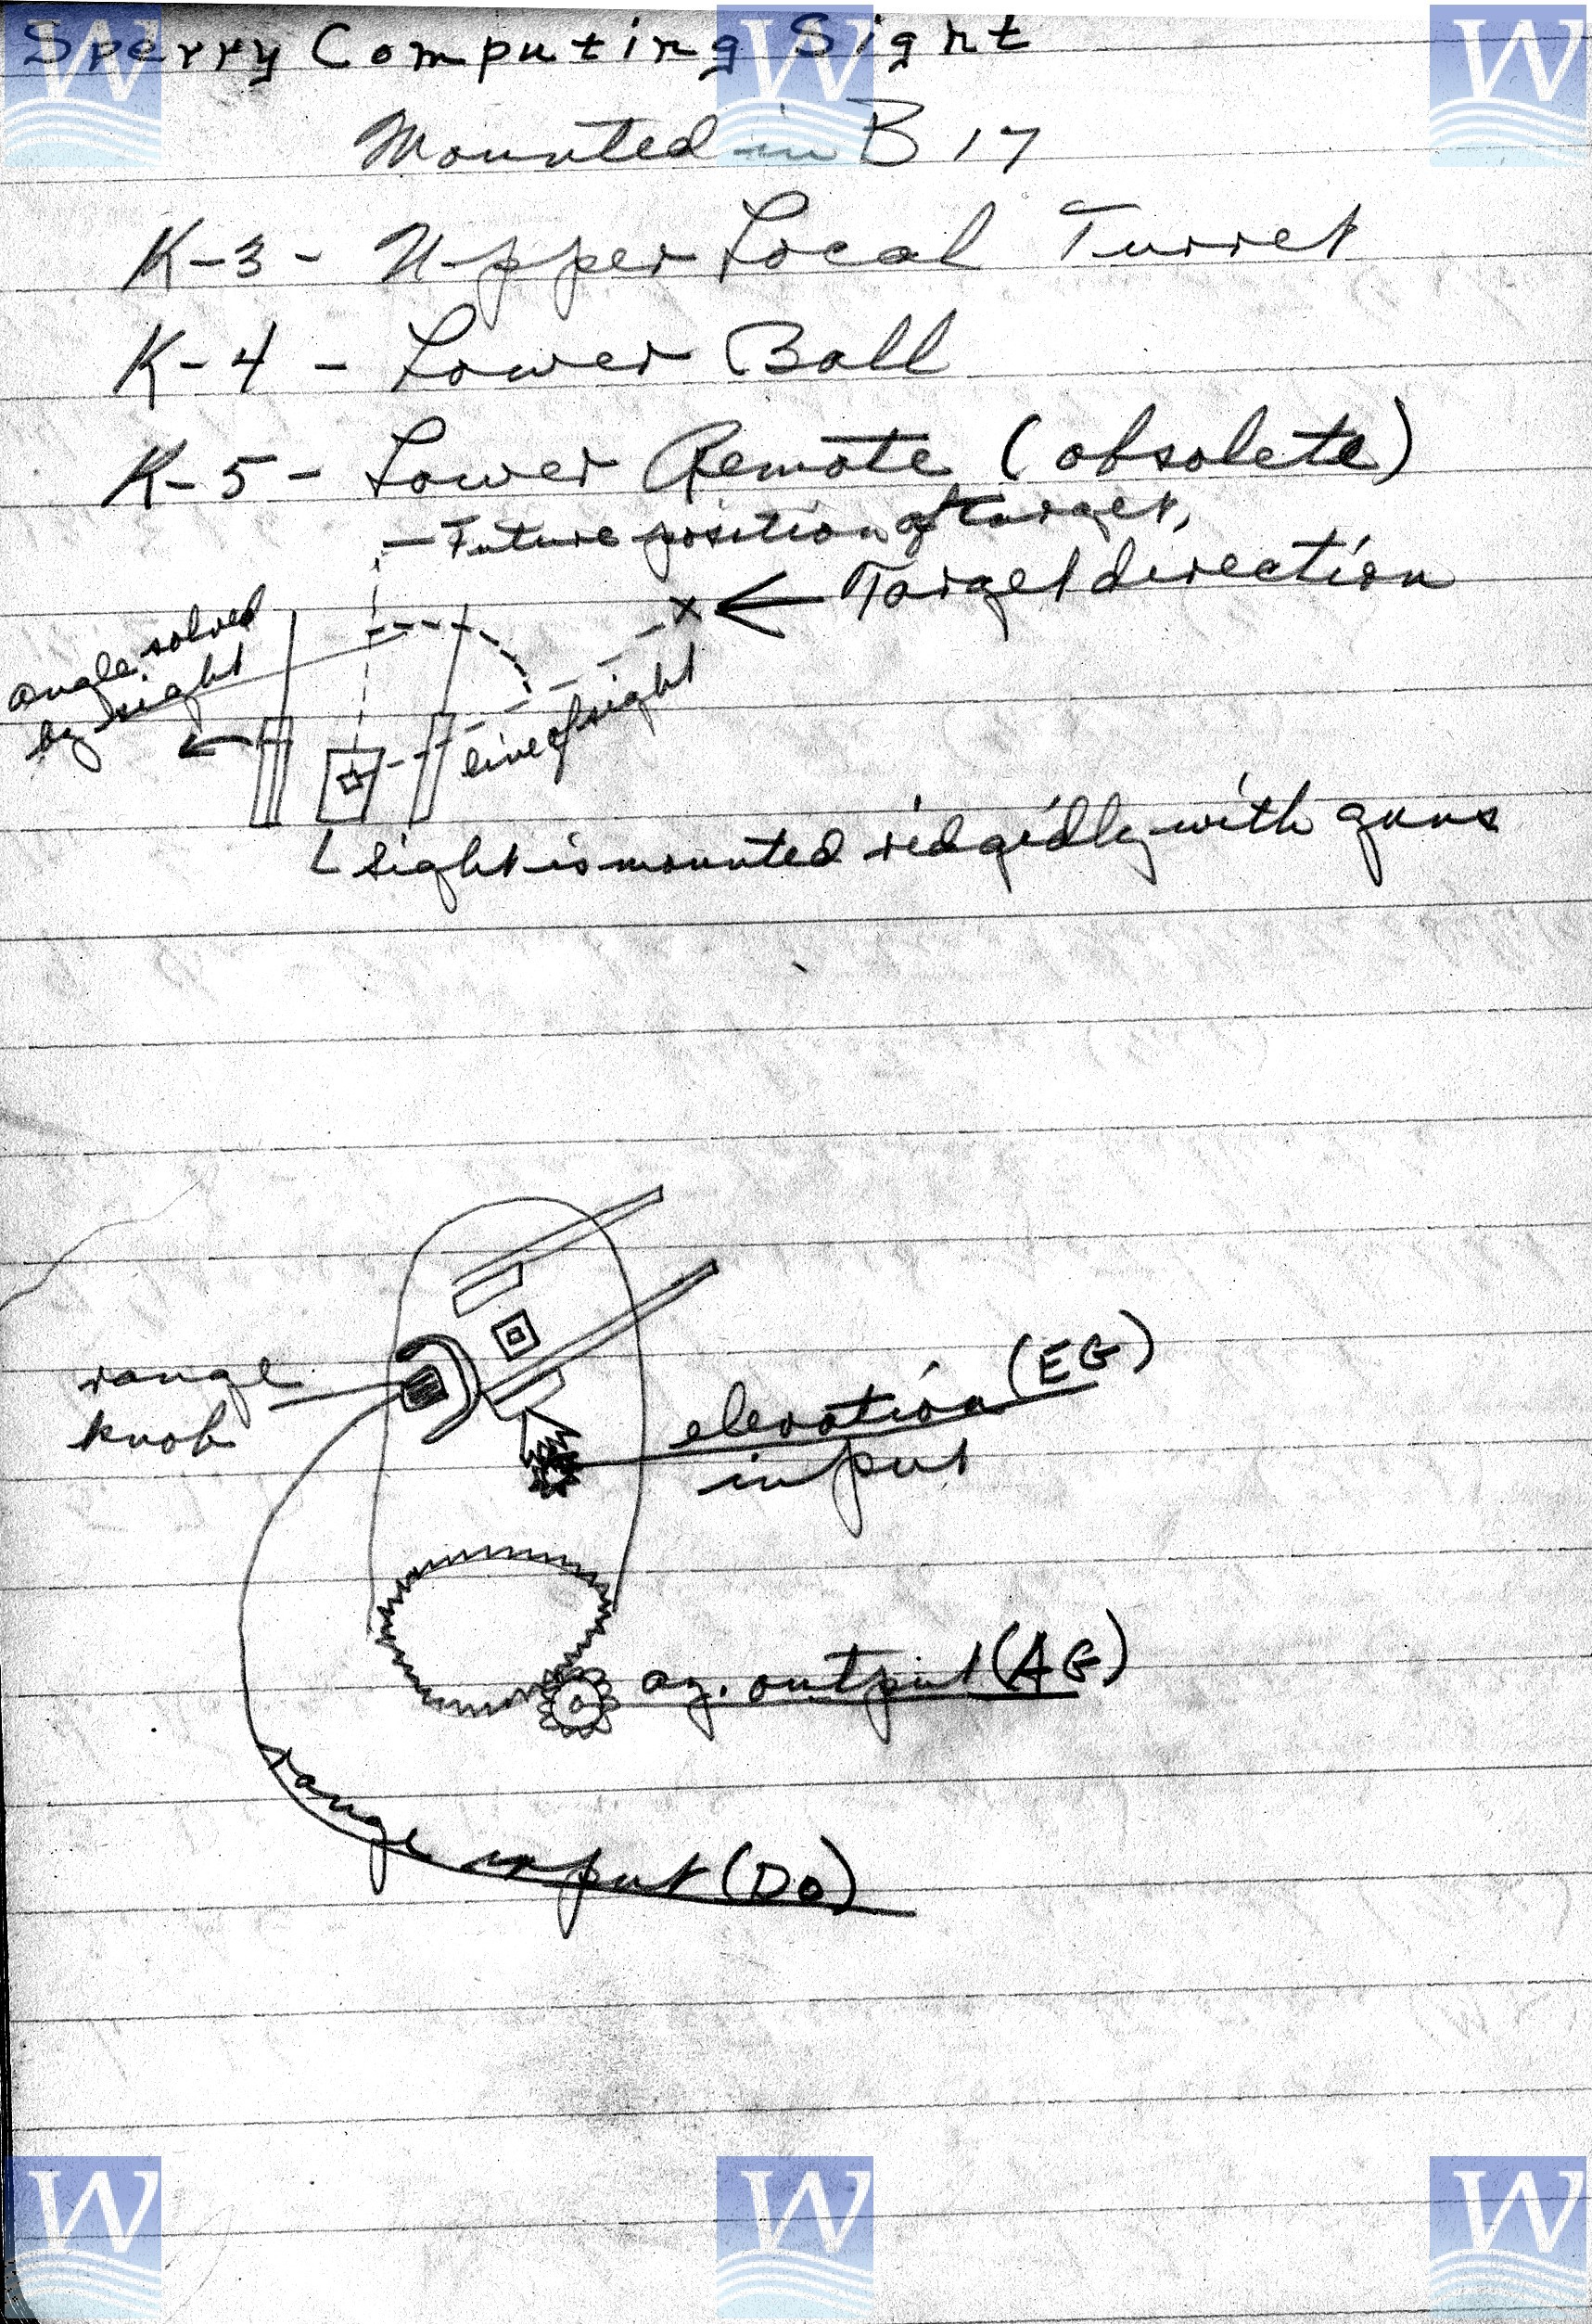 Sperry Computing Sight
Mounted in B 17
K-3 - Upper Local Turret
K-4 - Lower Ball
K-5 - Lower Remote (obsolete)
- Future position of target,
Target direction
x
angle solved
by sight
line of sight
sight is mounted ridgidly with guns
range
knob
elevation (EG)
input
az. output (AG)
range input (Do)
W
W
W
W
W
W